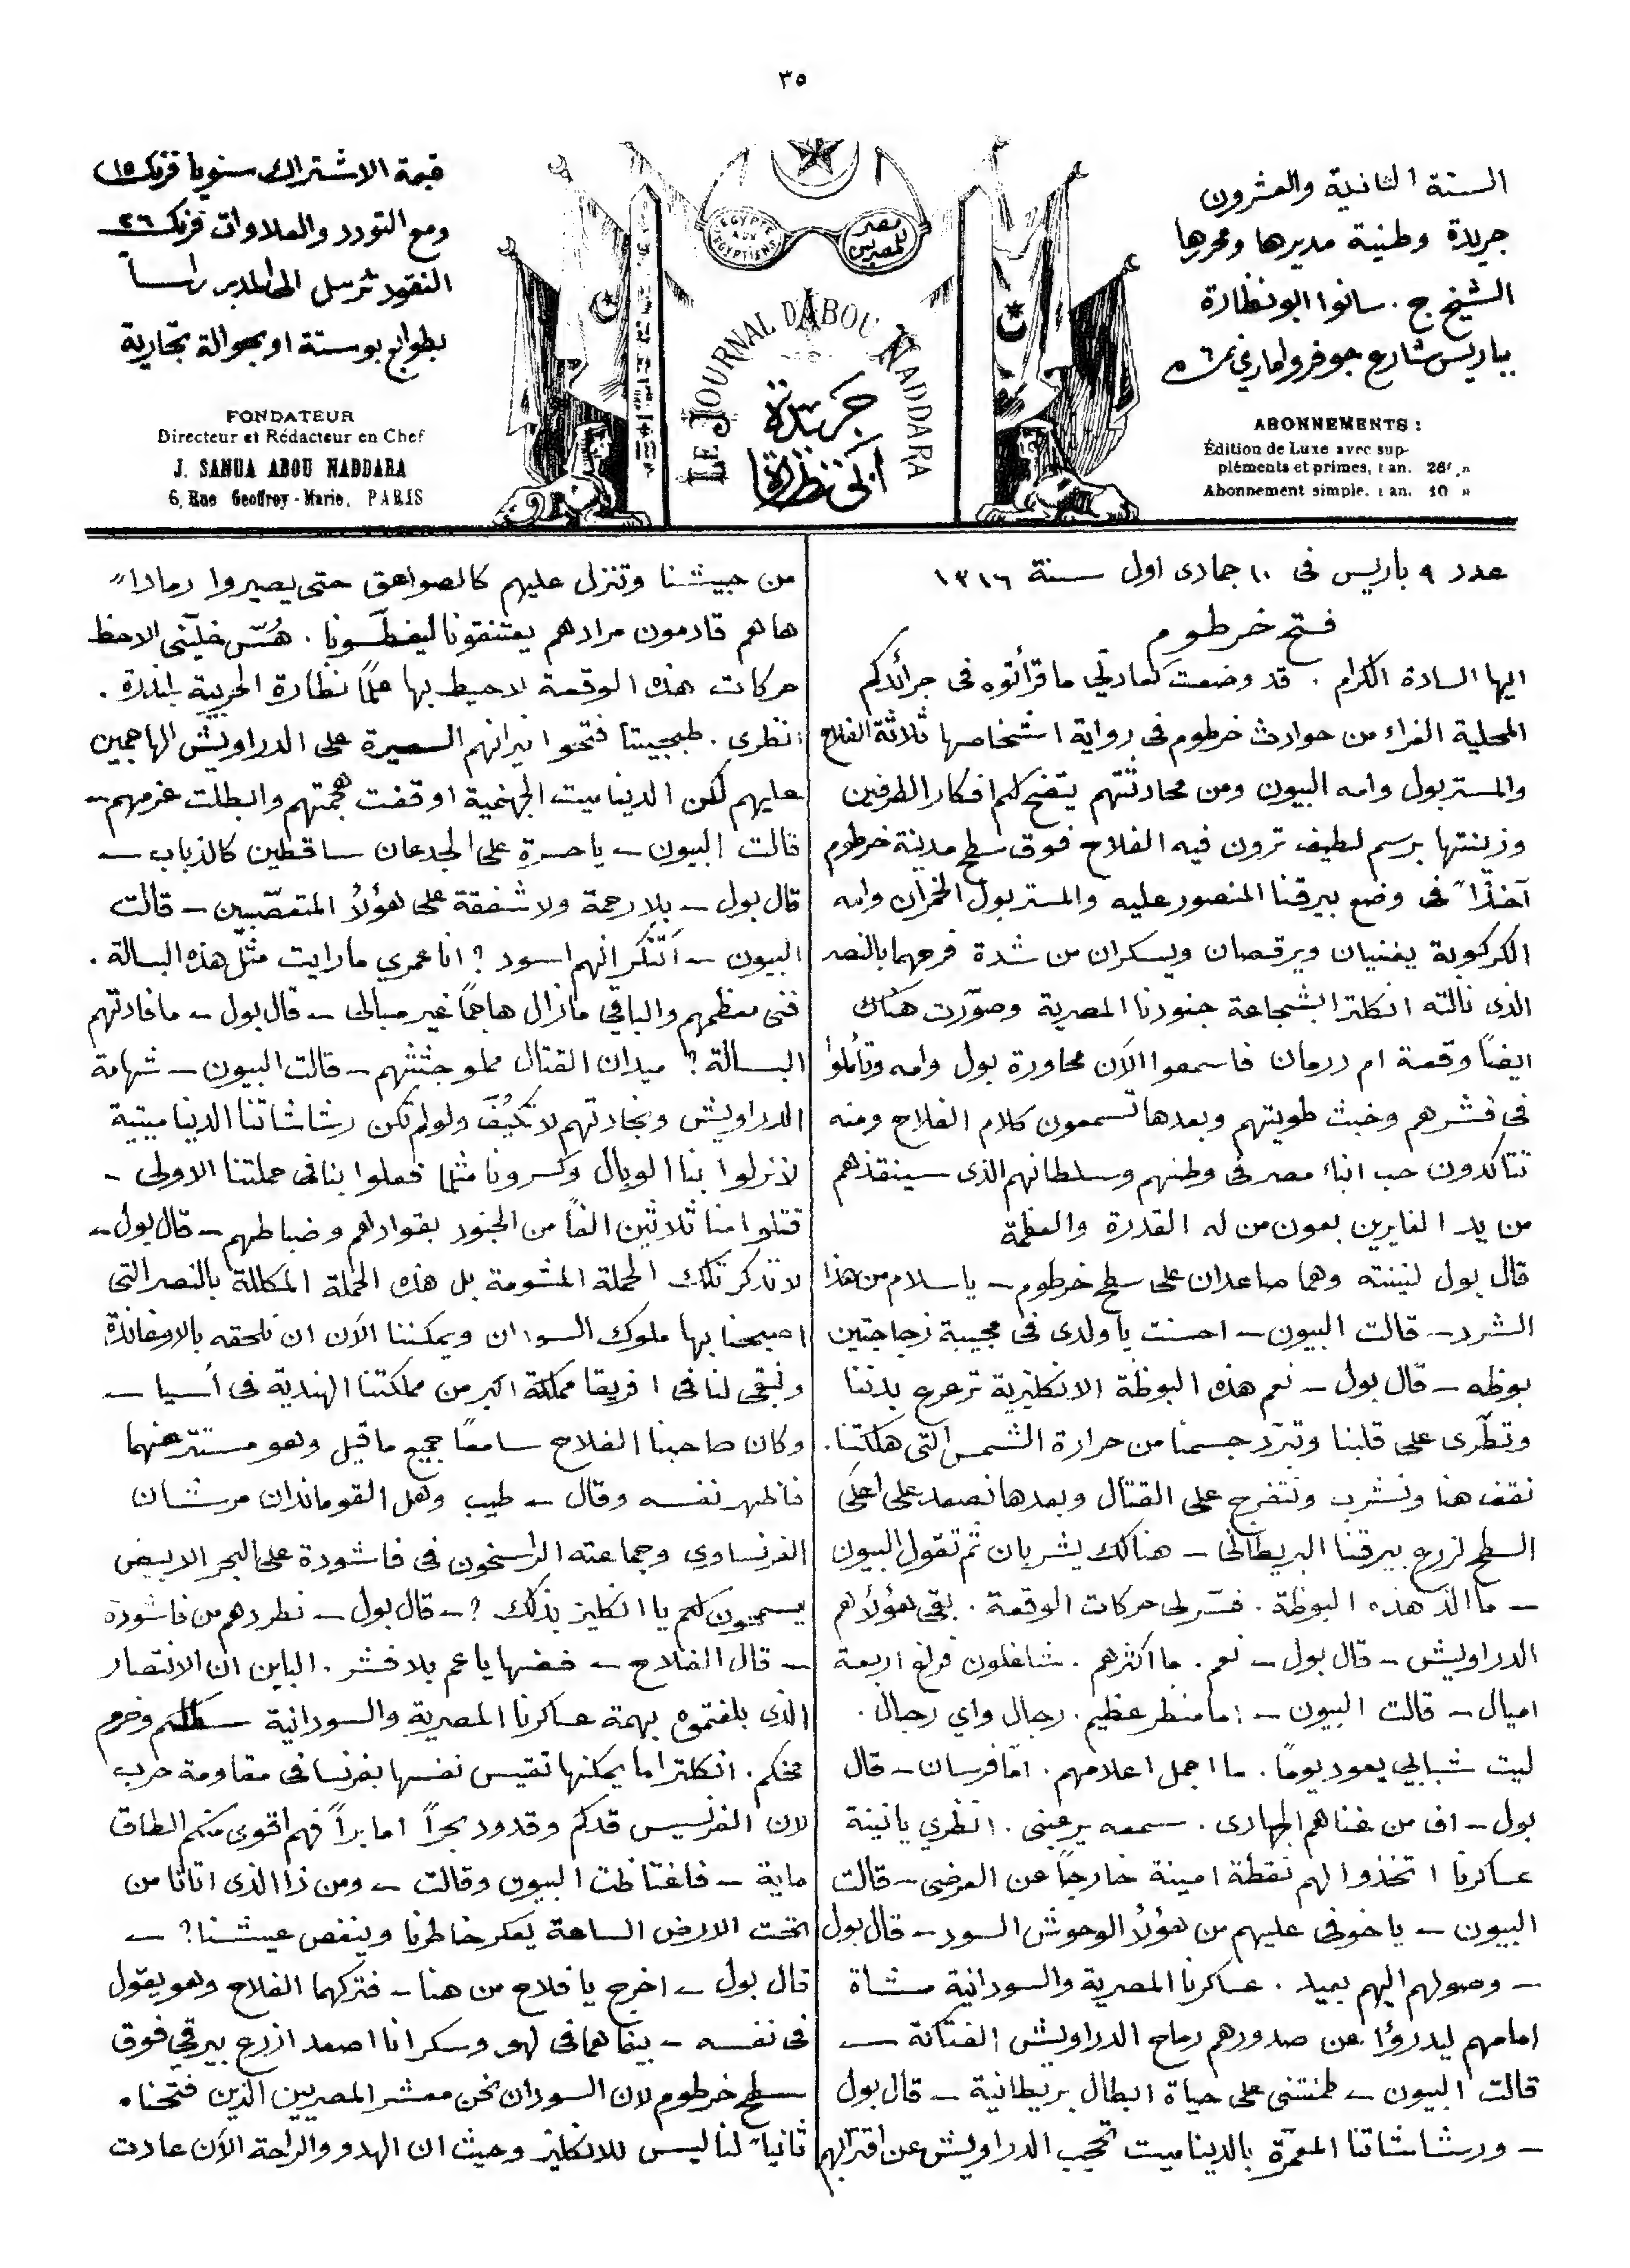 ٣٥
السنة الثانية والعشرون
جريدة وطنية مديرها ومحررها
الشيخ ج. سانوا ابو نظارة
بباريس شارع جوفروا ماري نمرة ٦
ABONNEMENTS :
Édition de Luxe avec sup-
pléments et primes, 1 an. 26f »
Abonnement simple. 1 an. 10 »
EGYPTE AUX EGYPTIENS
مصر للمصريين
LE JOURNAL D'ABOU NADDARA
جريدة
ابي نظارة
قيمة الاشتراك سنويا فرنك ١٥
ومع التورد والعلاوات فرنك ٢٦
النقود ترسل الى المدير راساً
بطوابع بوستة او بحوالة تجارية
FONDATEUR
Directeur et Rédacteur en Chef
J. SANUA ABOU NADDARA
6, Rue Geoffroy-Marie, PARIS
عدد ٩ باريس فى ١٠ جمادى اول سنة ١٣١٦
فتح خرطوم
ايها السادة الكرام . قد وضعت كعادتي ما قرأتوه فى جرائدكم
المحلية الغراء من حوادث خرطوم فى رواية اشخاصها ثلاثة الفلاح
والمستر بول وامه البيون ومن محادثتهم يتضح لكم افكار الطرفين
وزينتها برسم لطيف ترون فيه الفلاح فوق سطح مدينة خرطوم
آخذاً فى وضع بيرقنا المنصور عليه والمستر بول الخمران وامه
الكركوبة يغنيان ويرقصان ويسكران من شدة فرحهما بالنصر
الذى نالته انكلترا بشجاعة جنودنا المصرية وصوّرت هناك
ايضاً وقعة ام درمان فاسمعوا الآن محاورة بول وامه وتأملوا
فى فشرهم وخبث طويتهم وبعدها تسمعون كلام الفلاح ومنه
تتاكدون حب ابناء مصر فى وطنهم وسلطانهم الذى سينقذهم
من يد الغايرين بعون من له القدرة والعظمة
قال بول لنينته وهما صاعدان على سطح خرطوم – يا سلام من هذا
الشرد – قالت البيون – احسنت يا ولدى فى مجيبة زجاجتين
بوظه – قال بول – نعم هذه البوظة الانكليزية ترعرع بدننا
وتطّرى على قلبنا وتبرّد جسمنا من حرارة الشمس التى هلكتنا .
نقف هنا ونشرب ونتفرج على القتال وبعدها نصعد على اعلى
السطح لزرع بيرقنا البريطانى – هنالك يشربان ثم تقول البيون
– ما الذ هذه البوظة . فسّر لى حركات الوقعة . بقى هؤلاء هم
الدراويش – قال بول – نعم . ما اكثرهم . شاغلون فراغ اربعة
اميال – قالت البيون – اما منظر عظيم . رجال واي رجال .
ليت شبابي يعود يوماً . ما اجمل اعلامهم . اما فرسان – قال
بول – اف من غناهم الجهادى . سمعه يرعبنى . انظري يا نينة
عساكرنا اتخذوا لهم نقطة امينة خارجاً عن العرضى – قالت
البيون – يا خوفى عليهم من هؤلاء الوحوش السود – قال بول
– وصولهم اليهم بعيد . عساكرنا المصرية والسودانية مشاة
امامهم ليدرؤا عن صدورهم رماح الدراويش الفتاكة –
قالت البيون – طمنتنى على حياة ابطال بريطانية – قال بول
– ورشاشاتنا المعمّرة بالديناميت تحجب الدراويش عن اقترابهم
من جيشنا وتنزل عليهم كالصواعق حتى يصيروا رماداً
ها هم قادمون مرادهم يعتنقونا ليفطسونا . هُسّ خلّينى الاحظ
حركات هذه الوقعة لاحيط بها علماً نظارة الحربية بلندرة .
انظرى . طبجيتنا فتحوا نيرانهم السعيرة على الدراويش الهاجمين
عليهم لكن الديناميت الجهنمية اوقفت هجمتهم وابطلت عزمهم –
قالت البيون – يا حسرة على الجدعان ساقطين كالذباب –
قال بول – بلا رحمة ولا شفقة على هؤلاء المتعصّبين – قالت
البيون – اتنكر انهم اسود ؟ انا عمري ما رايت مثل هذه البسالة .
فنى معظمهم والباقي مازال هاجماً غير مبالى – قال بول – ما فادتهم
البسالة ؟ ميدان القتال مملو جثثهم – قالت البيون – شهامة
الدراويش ونجادتهم لا تكيّف ولو لم تكن رشاشاتنا الديناميتية
لانزلوا بنا الوبال وكسرونا مثلما فعلوا بنا فى حملتنا الاولى –
قتلوا منا ثلاثين الفاً من الجنود بقوادهم وضباطهم – قال بول –
لا تذكر تلك الحملة المشومة بل هذه الحملة المكللة بالنصر التى
اصبحنا بها ملوك السودان ويمكننا الآن ان نلحقه بالاوغاندة
ونبقى لنا فى افريقا مملكة اكبر من مملكتنا الهندية فى أسيا –
وكان صاحبنا الفلاح سامعاً جميع ما قيل وهو مستتر عنهما
فاظهر نفسه وقال – طيب وهل القوماندان مرشان
الفرنساوى وجماعته الراسخون فى فاشودة على البحر الابيض
يسمحون لكم يا انكليز بذلك ؟ – قال بول – نطردهم من فاشودة
– قال الفلاح – فضها يا عم بلا فشر . الباين ان الانتصار
الذى بلغتموه بهمة عساكرنا المصرية والسودانية وخرم
مخكم . انكلترا ما يمكنها تقيس نفسها بفرنسا فى مقاومة حرب
لان الفرنسيس قدكم وقدود بحراً اما براً فهم اقوى منكم الطاق
ماية – فاغتاظت البيون وقالت – ومن ذا الذى اتانا من
تحت الارض الساعة يعكر خاطرنا وينغص عيشنا ؟ –
قال بول – اخرج يا فلاح من هنا – فتركهما الفلاح وهو يقول
فى نفسه – بينما هما فى لهو وسكر انا اصعد ازرع بيرقي فوق
سطح خرطوم لان السودان نحن معشر المصريين الذين فتحناه
ثانياً لنا ليس للانكليز وحيث ان الهدو والراحة الآن عادت